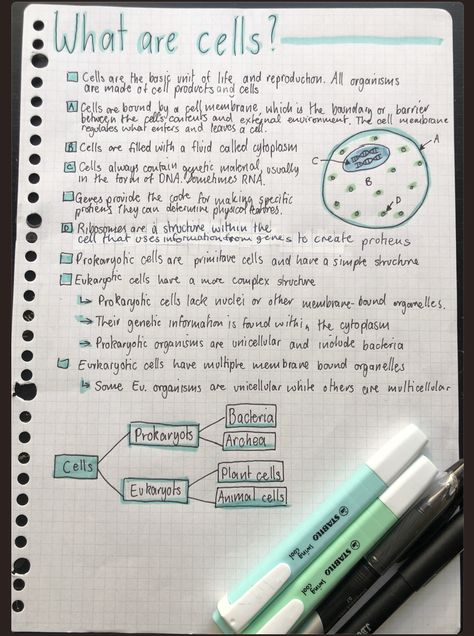 What are cells?
Cells are the basic unit of life, and reproduction. All organisms
are made of cell products and cells
A Cells are bound by a cell membrane, which is the boundary or barrier
between the cells' contents and external environment. The cell membrane
regulates what enters and leaves a cell.
B Cells are filled with a fluid called cytoplasm
C Cells always contain genetic material, usually
in the form of DNA, sometimes RNA.
Genes provide the code for making specific
proteins. They can determine physical features.
D Ribosomes are a structure within the
cell that uses information from genes to create proteins
A
C
B
D
Prokaryotic cells are primitave cells and have a simple structure
Eukaryotic cells have a more complex structure
↳ Prokaryotic cells lack nuclei or other membrane-bound organelles.
→ Their genetic information is found within the cytoplasm
→ Prokaryotic organisms are unicellular and include bacteria
Eurkaryotic cells have multiple membrane bound organelles
↳ Some Eu. organisms are unicellular while others are multicellular
Bacteria
Prokaryots
Archea
Cells
Plant cells
Eukaryots
Animal cells
STABILO
swing cool
STABILO
swing cool